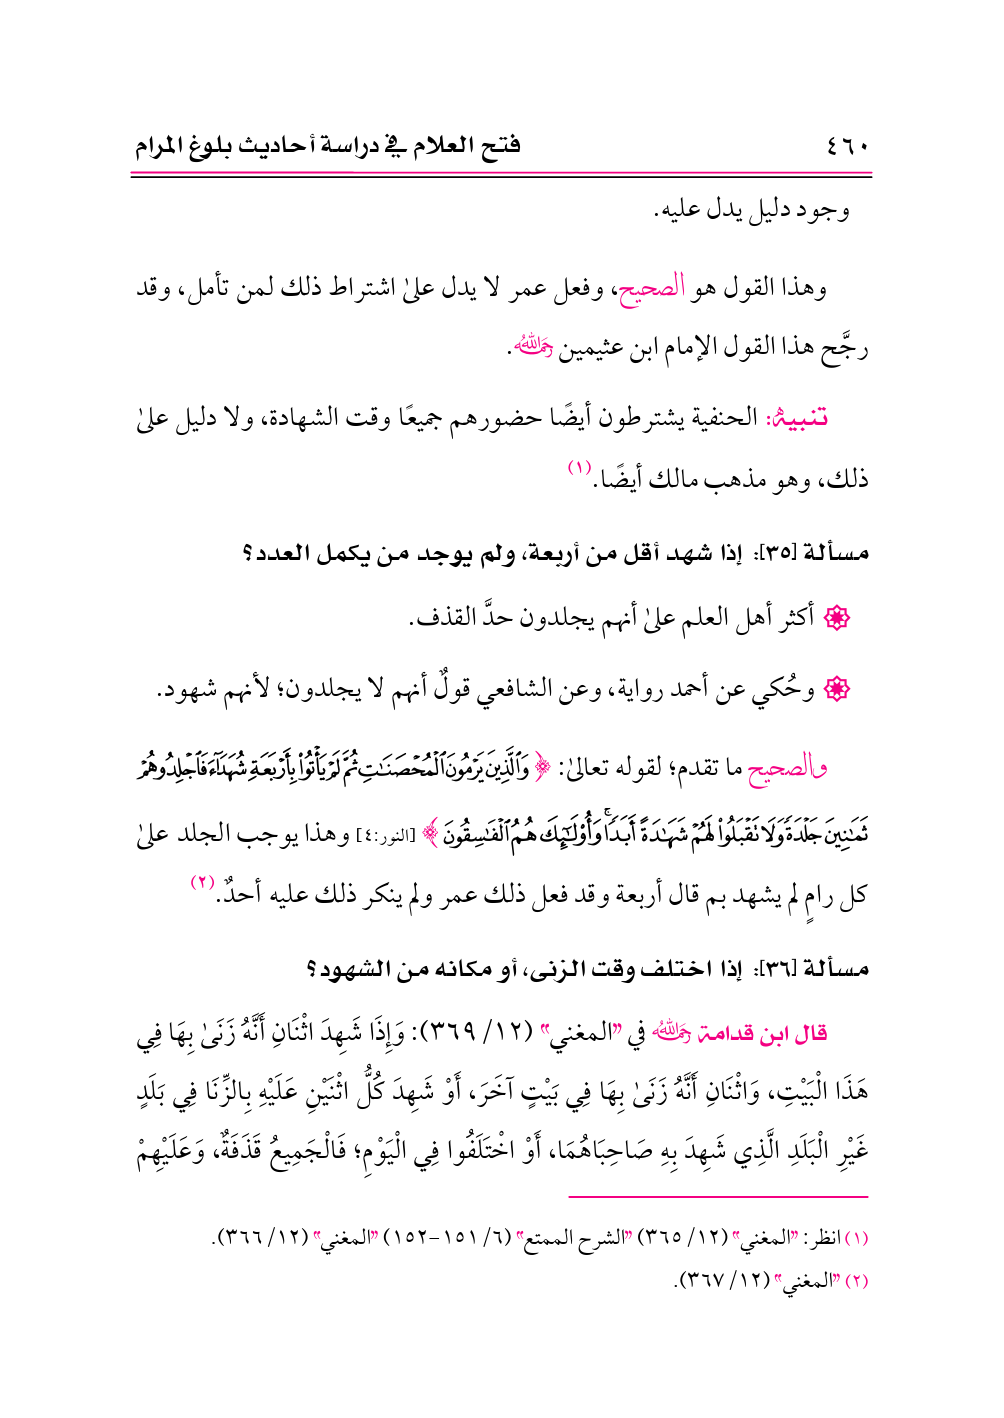 ٤٦٠ فتح العلام في دراسة أحاديث بلوغ المرام
وجود دليل يدل عليه.
وهذا القول هو الصحيح، وفعل عمر لا يدل علىٰ اشتراط ذلك لمن تأمل، وقد
رجَّح هذا القول الإمام ابن عثيمين رحمه الله.
تنبيهٌ: الحنفية يشترطون أيضًا حضورهم جميعًا وقت الشهادة، ولا دليل علىٰ
ذلك، وهو مذهب مالك أيضًا.(١)
مسألة [٣٥]: إذا شهد أقل من أربعة، ولم يوجد من يكمل العدد؟
أكثر أهل العلم علىٰ أنهم يجلدون حدَّ القذف.
وحُكي عن أحمد رواية، وعن الشافعي قولٌ أنهم لا يجلدون؛ لأنهم شهود.
والصحيح ما تقدم؛ لقوله تعالىٰ: ﴿وَٱلَّذِينَ يَرۡمُونَ ٱلۡمُحۡصَنَٰتِ ثُمَّ لَمۡ يَأۡتُواْ بِأَرۡبَعَةِ شُهَدَآءَ فَٱجۡلِدُوهُمۡ
ثَمَٰنِينَ جَلۡدَةٗ وَلَا تَقۡبَلُواْ لَهُمۡ شَهَٰدَةً أَبَدٗاۚ وَأُوْلَٰٓئِكَ هُمُ ٱلۡفَٰسِقُونَ﴾ [النور:٤] وهذا يوجب الجلد علىٰ
كل رامٍ لم يشهد بم قال أربعة وقد فعل ذلك عمر ولم ينكر ذلك عليه أحدٌ.(٢)
مسألة [٣٦]: إذا اختلف وقت الزنى، أو مكانه من الشهود؟
قال ابن قدامة رحمه الله في "المغني" (١٢/ ٣٦٩): وَإِذَا شَهِدَ اثْنَانِ أَنَّهُ زَنَىٰ بِهَا فِي
هَذَا الْبَيْتِ، وَاثْنَانِ أَنَّهُ زَنَىٰ بِهَا فِي بَيْتٍ آخَرَ، أَوْ شَهِدَ كُلُّ اثْنَيْنِ عَلَيْهِ بِالزِّنَا فِي بَلَدٍ
غَيْرِ الْبَلَدِ الَّذِي شَهِدَ بِهِ صَاحِبَاهُمَا، أَوْ اخْتَلَفُوا فِي الْيَوْمِ؛ فَالْجَمِيعُ قَذَفَةٌ، وَعَلَيْهِمْ
(١) انظر: "المغني" (١٢/ ٣٦٥) "الشرح الممتع" (٦/ ١٥١-١٥٢) "المغني" (١٢/ ٣٦٦).
(٢) "المغني" (١٢/ ٣٦٧).